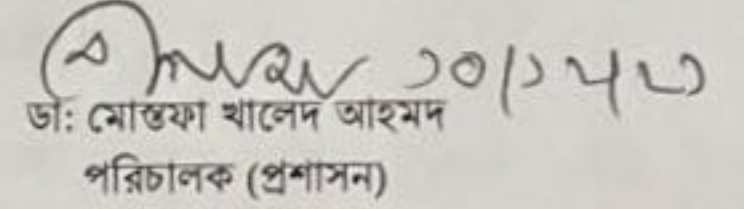 ডা: মোস্তফা খালেদ আহমদ
পরিচালক (প্রশাসন)